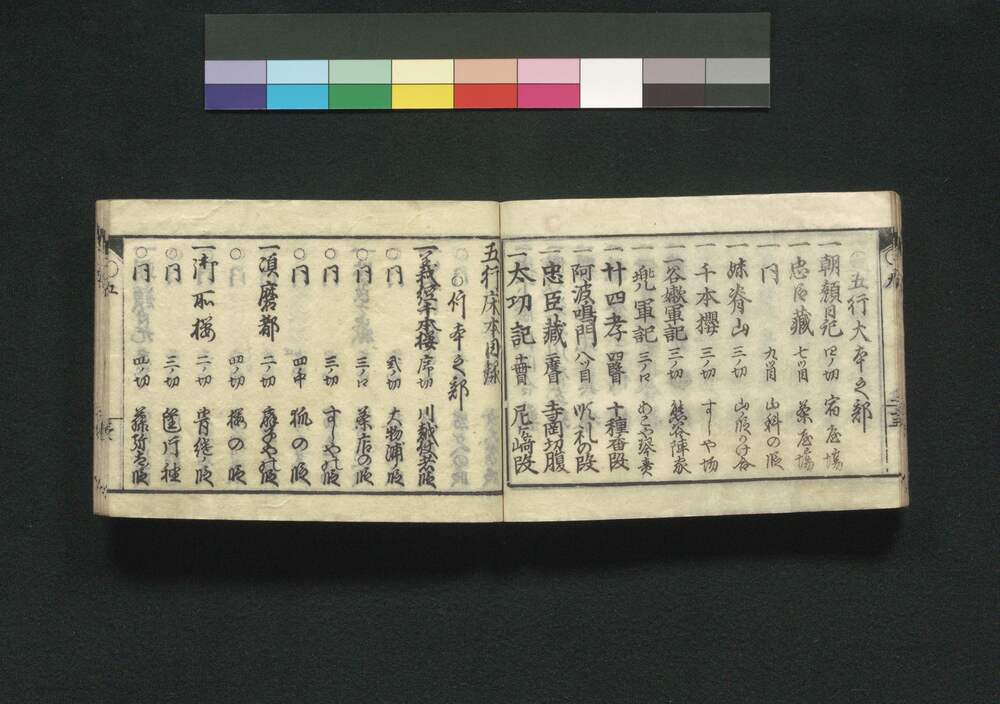 五行大本之部
一朝顔日記 四ノ切 宿屋場
一忠臣蔵 七ツ目 茶屋場
一同 九ツ目 山科の段
一妹脊山 三ノ切 山の段
一千本櫻 三ノ切 すしや場
一一谷嫩軍記 三ノ切 熊谷陣家
一兜軍記 三ノ口 あこや琴責
一廿四孝 四 十種香段
一阿波鳴門 八ツ目 順礼の段
一忠臣藏 寺岡切腹
一太功記 十冊目 尼ヶ崎段
五行床本目録
一義経千本櫻 席切 川越使者段
○同 弐ノ切 大物浦段
○同 三ノ口 茶店の段
○同 三ノ切 すしやの段
○同 四ノ中 狐の段
一須磨都 二ノ切 扇屋の段
○同 四ノ切 櫻の段
一御所櫻 二ノ切
○同 三ノ切
○同 四ノ切 藤弥太段